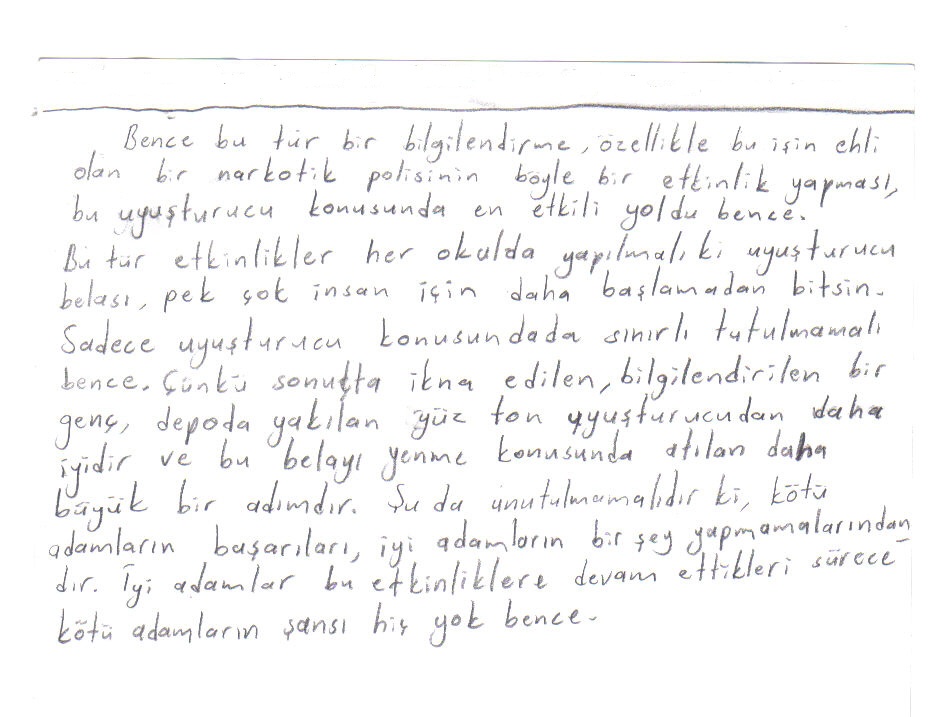 Bence bu tür bir bilgilendirme, özellikle bu işin ehli
olan bir narkotik polisinin böyle bir etkinlik yapması,
bu uyuşturucu konusunda en etkili yoldu bence.
Bu tür etkinlikler her okulda yapılmalı ki uyuşturucu
belası, pek çok insan için daha başlamadan bitsin.
Sadece uyuşturucu konusundada sınırlı tutulmamalı
bence. Çünkü sonuçta ikna edilen, bilgilendirilen bir
genç, depoda yakılan yüz ton uyuşturucudan daha
iyidir ve bu belayı yenme konusunda atılan daha
büyük bir adımdır. Şu da unutulmamalıdır ki, kötü
adamların başarıları, iyi adamların bir şey yapmamalarından
dır. İyi adamlar bu etkinliklere devam ettikleri sürece
kötü adamların şansı hiç yok bence.